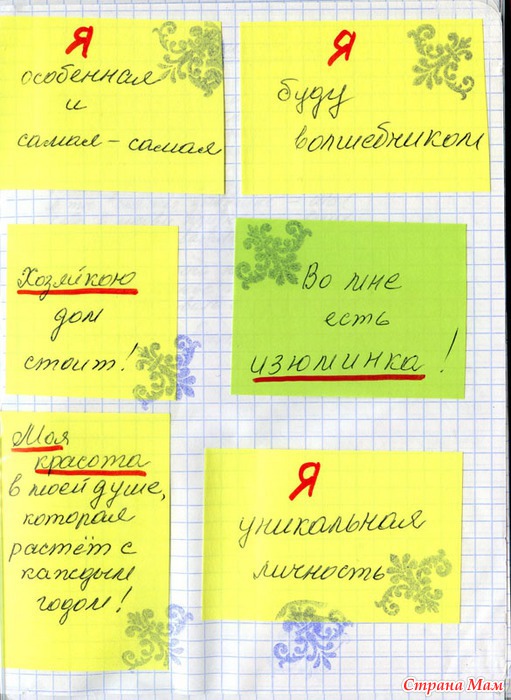 Я
особенная
и
самая-самая
Я
буду
волшебником
Хозяйкою
дом
стоит!
Во мне
есть
изюминка!
Моя
красота
в моей душе,
которая
растёт с
каждым
годом!
Я
уникальная
личность
Страна Мам